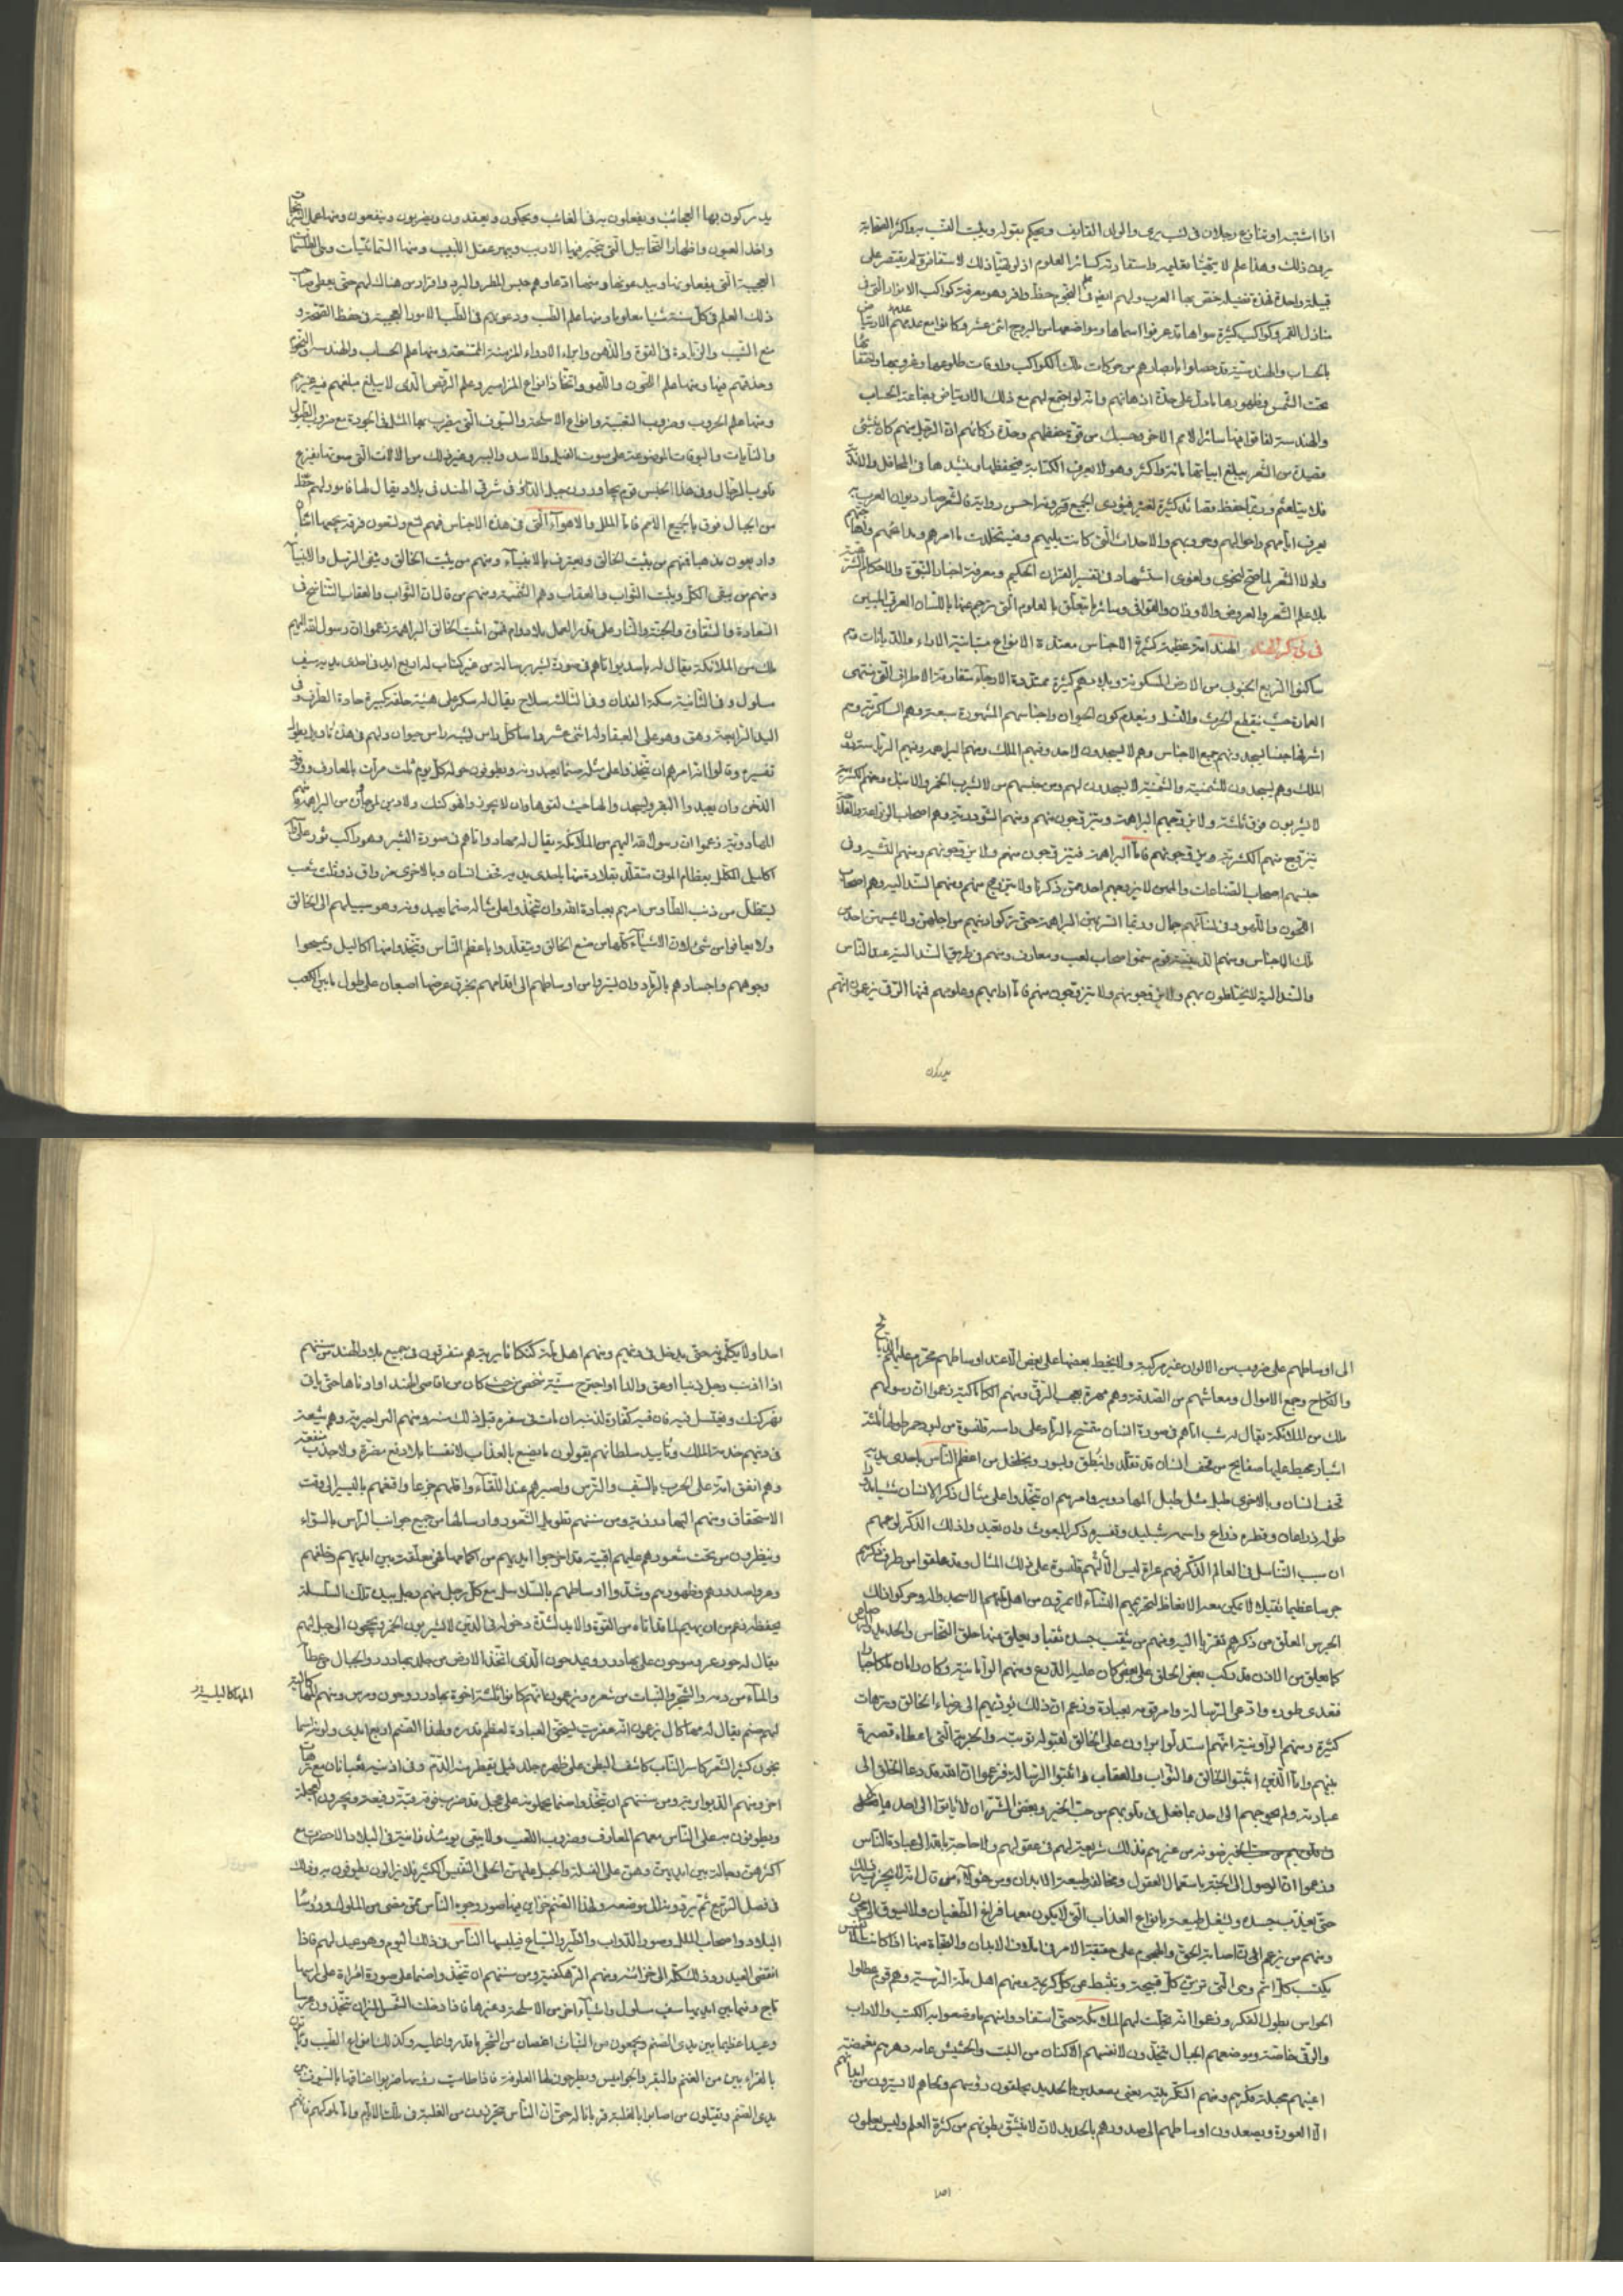 اذا اشتبه او تنازع رجلان في نسب يرى والولد القايف ويحكم بقوله ويثبت النسب به واكثر الصحابة
يرون ذلك وهذا علم لا يتهيأ تعليمه واستفادته كسائر العلوم اذ لو تهيأ ذلك لاستفاض ولم يقتصر على
قبيلة واحدة فهذه فضيلة خص بها العرب ولهم ايضا في علم النجوم حظ وافر وهو معرفة كواكب الانوار التي في
منازل القمر وكواكب كثيرة سواها قد عرفوا اسماها ومواضعها من البروج اثنى عشر وكانوا مع عدمهم الارتياض
بالحساب والهندسية قد حصلوا بابصارهم من حركات تلك الكواكب واوقات طلوعها وغروبها واختفائها
تحت الشمس وظهورها ما دل على حدة اذهانهم وانه لو اجتمع لهم مع ذلك الارتياض بصناعة الحساب
والهندسة لفاقوا فيها سائر الامم الاخر وحسبك من قوة حفظهم وحدة ذكائهم ان الرجل منهم كان ينشئ
قصيدة من الشعر يبلغ ابياتها مائة واكثر وهو لا يعرف الكتابة فيحفظها وينشدها في المحافل والاندية
فلا يتلعثم وربما حفظ قصائد كثيرة لغيره فيؤدي الجميع قبروية احسن رواية فالشعر صار ديوان العرب به
يعرف ايامهم واحوالهم وحروبهم والاحداث التي كانت بينهم وفيه تخلدت مآثرهم ومدائحهم واهاجيهم
ولولا الشعر لما صح لنحوي ولغوي استشهاد في تفسير القران الحكيم ومعرفة اخبار النبوة والاحكام الشرعية
بل علم الشعر والعروض والاوزان والقوافي وسائر ما يتعلق بالعلوم التي يترجم عنها باللسان العربي المبين
في ذكر الهند الهند امة عظيمة كثيرة الاجناس معتددة الانواع متباينة الاراء والديانات وهم
ساكنوا الربع الجنوب من الارض المسكونة وبلادهم كثيرة ممتدة الارجاء متقاذفة الاطراف التي منتهى
العمارة حيث ينقطع الحرث والنسل وينعدم كون الحيوان واجناسهم المشهورة سبعة وهم الساكرتية وهم
اشرفها جنسا يسجد لهم جميع الاجناس وهم لا يسجدون لاحد وفيهم الملك ومنهم البراهمة
الملك وهم يسجدون للشمنية والشمنية لا يسجدون لهم ومن جنسهم من لا يشرب الخمر والانبذة ومنهم الكشترية
لا يشربون فوق ثلثة ولا يزوجهم البراهمة ويتزوجون منهم ومنهم الشودرية وهم اصحاب الزراعة والفلاحة
يتزوج منهم الكشترية ويزوجونهم فاما البراهمة فيتزوجون منهم ولا يزوجونهم ومنهم البشير وفي
جنسهم اصحاب الصناعات والمهن لا يزوجهم احد ممن ذكرنا ولا يتزوج منهم ومنهم السندالية وهم اصحاب
اللحون واللهو وفي نسائهم جمال وربما البراهمة حتى تركوا دينهم من اجلهن ولا يمس احدا
تلك الاجناس ومنهم الذنبية قوم سمر اصحاب لعب ومعازف ومنهم في طريق السندالية عند الناس
والسندالية لا يختلطون بهم ولا يزوجونهم ولا يتزوجون منهم فاما آدابهم وعلومهم فمنها الرقى يزعمون انهم
يدركون
يدركون بها العجائب ويفعلون به في الغائب ويحلون ويعقدون ويضرون وينفعون ومنها عمل النيرنجات
واخذ العيون واظهار التخاييل التي يتحير فيها الاريب ويبهر عقل اللبيب ومنها السمائيات وهي الطلسمات
العجيبة التي يفعلونها ويبدعونها ومنها ادعاءهم حبس المطر والبرد وافرازه من هناك لهم حتى يعطي صاحب
ذلك العلم في كل سنة شيئا معلوما ومنها علم الطب ودعويهم في الطب الامور العجيبة في حفظ الصحة و
منع الشيب والزيادة في القوة والذهن وابراء الادواء المزمنة الممتنعة ومنها علم الحساب والهندسة والنجوم
وحذقهم فيها ومنها علم اللحون واللهو واتخاذ انواع المزامير وعلم الرقص الذي لا يبلغ مبلغهم فيه غيرهم
ومنها علم الحروب وضروب التعبية وانواع الاسلحة والسيوف التي يضرب بها المثل في الجودة مع ضروب الطبول
والنايات والبوقات الموضوعة على صوت الفيل والاسد والببر وغير ذلك من الالات التي صوتها يفزع
قلوب الرجال وفي هذا الجنس قوم يجاورون جبل الدائر في شرقي الهند في بلاد يقال لها قامور لهم
من الجبال فوق ما لجميع الامم فاما الملل والاهواء التي في هذه الاجناس فهم تسع وتسعون فرقة يجمعها اثنان
واربعون مذهبا فمنهم من يثبت الخالق ويعترف بالانبياء ومنهم من يثبت الخالق وينفي الرسل والانبياء
ومنهم من ينفي الكل ويثبت الثواب والعقاب وهم الشمنية ومنهم من قال ان الثواب والعقاب التناسخ في
السعادة والشقاوة والجنة والنار على قدر العمل بلا دوام فمن اثبت الخالق البراهمة زعموا ان رسول الله اليهم
ملك من الملائكة يقال له باسديو اتاهم في صورة بشر برسالة من غير كتاب له اربع ايد في احدى يديه سيف
مسلول وفي الثانية سكة الفدان وفي الثالثة سلاح يقال له سكر على هيئة حلقة كبيرة حادة الطرف وفي
اليد الرابعة وهق وهو على العنقاء وله اثنى عشر راسا كل راس يشبه راس حيوان ولهم في هذه تاويل
تفسيره وقالوا انه امرهم ان يتخذوا على مثله صنما يعبدونه ويطوفون حوله كل يوم ثلث مرات بالمعازف ووقود
الدخن وان يعبدوا البقر ويسجد والها حيث لقوها وان لا يجوزوا نهر كنك ولا دين لمن جاز من البراهمة ومنهم
المهادوية زعموا ان رسول الله اليهم من الملائكة يقال له مهادو اتاهم في صورة البشر وهو راكب ثور على راسه
اكليل مكلل بعظام الموتى متقلد بقلادة منها باحدى يديه قحف انسان وبالاخرى مزراق ذو ثلث شعب
ليتظلل من ذنب الطاوس امرهم بعبادة الله وان يتخذوا على مثاله صنما يعبدونه وهو سبيلهم الى الخالق
ولا يعافوا من شئ لان الاشياء كلها من صنع الخالق ويتقلدوا باعظم الناس ويتخذوا منها اكاليل ويمسحوا
وجوههم واجسادهم بالرماد وان يستروا من اوساطهم الى اقدامهم بخرق عرضها اصبعان على طول ما بين الكعب
الى اوساطهم على ضروب من الالوان غير مركبة ولا يخيط بعضها على بعض الا عند اوساطهم محرم عليهم الذبايح
والنكاح وجمع الاموال ومعاشهم من الصدقة وهم مهرة بعجب الرقى ومنهم الكاباكية زعموا ان رسولهم
ملك من الملائكة يقال له شب اتاهم في صورة انسان متمسح بالرماد على راسه قلنسوة من لبود حمر طولها ثلثة
اشبار محيط عليها صفايح من قحف انسان قد تقلد وانتطق وتسور وتخلخل من اعظم الناس باحدى يديه
قحف انسان وبالاخرى طبل مثل طبل المهادوية وامرهم ان يتخذوا على مثال ذكر الانسان شيئا
طوله ذراعان وقطره ذراع واسمه شبليد وتفسيره ذكر المبعوث وان يعبدوا ذلك الذكر لزعمهم
ان سبب التناسل في العالم الذكر فهم عراة ليس الا لهم قلنسوة على ذلك المثال وقد علقوا من طرف ذكرهم
جرسا عظيما ثقيلا لا يمكن معه الانعاظ لتحريمهم النساء لا يمرون من اهل ملتهم الا سجد له وحركوا ذلك
الجرس المعلق من ذكرهم تقربا اليه ومنهم من يثقب جسده ثقبا ويعلق عنده حلق النحاس والحديد
كما يعلق من الاذن قد ركب بعض الحلق على بعض كان عليه الدرع ومنهم الراماسية وكان رامان ملكا جبارا
فعدى طوره وادعى الرسالة وامر قومه بعبادة وزعم ان ذلك يؤديهم الى ضياء الخالق وترهات
كثيرة ومنهم الراونية انهم استدلوا براون على الخالق لقبوله توبته والحربة التي اعطاه قصيرة
بينهم واما الذين اثبتوا الخالق والثواب والعقاب واثبتوا الرسالة فزعموا ان الله قد دعا الخلق الى
عبادته ولم يحوجهم الى احد بما فعل في قلوبهم من حب الخير وبغض الشر ان لا يأتوا الى احد
وزعموا ان الوصول الى الجنة باستعمال العقول ومخالفة طبيعة الابدان ومن هؤلاء من قال انه لا يجزيه ذلك
حتى يعذب جسده ويشغل طبيعته بانواع العذاب التي لا يكون معها فراغ الطغيان ولا يسوق الى
ومنهم من يزعم ان لقاصابة الحق والهجوم على حقيقة الامر في اتلاف الابدان والنجاة منها اذا كانت النفس
يكتسب كل اثم وهي التي تزين كل قبيحة وتثبط عن كل كريمة ومنهم اهل ملة الرستية وهم قوم عطلوا
الحواس بطول الفكر وزعموا انه تجلت لهم الملائكة حتى استفادوا منهم ما وضعوا به الكتب والاداب
والرقى خاصة وموضعهم الجبال يتخذون لانفسهم الاكنان من النبت والحشيش عامة دهرهم مغمضة
اعينهم مجبلة فكرهم ومنهم التكرمنتية يعني مصفدين بالحديد يحلقون رؤسهم ولحاهم لا يسترون من ابدانهم
الا العورة ويصعدون اوساطهم الى صدورهم بالحديد لان لا ينشق بطونهم من كثرة العلم وليس يعلمون
احدا
احدا ولا يكلمونه حتى يدخل في دينهم ومنهم اهل ملة كنكا ناريه هم متفرقون في جميع بلاد الهند من سنتهم
اذا اذنب رجل ذنبا او عق والدا او اجترح سيئة شخص من حيث كان من اقاصي الهند او ادناها حتى ياتي
نهر كنك ويغتسل فيه فان فيه كفارة لذنبه ان مات في سفره قبل ذلك ومنهم الراجبرية وهم شيعة
في دينهم خدمة الملك وتأييد سلطانهم يقولون ما يصنع بالعذاب لانفسنا بلا دفع مضرة ولا جذب منفعة
وهم انفق امة على الحرب بالسيف والترس واصبرهم عند اللقاء واقلهم جزعا واقنعهم باليسير الى وقت
الاستحقاق ومنهم البهادونية ومن سننهم تطويل الشعور وارسالها من جميع جوانب الرأس بالسواء
وينظرون من تحت شعورهم عليهم اقبية قد اخرجوا ايديهم من اكمامها فهي معلقة بين ايديهم وخلفهم
وعروا صدورهم وظهورهم وشدوا اوساطهم بالسلاسل مع كل رجل منهم رجل بيده تلك السلسلة
يحفظه زعموا ان بهيما لما قد اتاه من القوة والايد لشدة دخوله في الدين لا يشربون الخمر ويحجون الى جبل لهم
يقال له جورعن
والماء من دمه والشجر والنبات من شعره ويزعمون انهم كانوا ثلثة اخوة بهادرو وجون ومرس ومنهم المهاكالية
لهم صنم يقال له مهاكال يزعمون انه عفريت يستحق العبادة لعظم قدره ولهذا الصنم اربع ايدى ولونه اسما
نجوني كثير الشعر كاسر الناب كاشف البطن على ظهره جلد فيل يقطر منه الدم وفي اذنيه ثعبانان مع
اخر ومنهم الدبوابرية ومن سننهم ان يتخذوا صنما يحملونه على عجل قد ضرب فوقه قبة رفيعة ويجرون العجلة
ويطوفون به على الناس معهم المعازف وضروب اللعب ولا يبقى يومئذ زانية في البلاد الا حضرت مع
اكثرهن رجالة بين ايديهن وهن على الفيلة والخيل عليهن الحلى النفيس الكثير فلا يزالون يطوفون به وذلك
في فصل الربيع ثم يرد وينزل موضعه ولهذا الصنم خزاين فيها صور وجوه الناس ممن مضى من الملوك ورؤسا
البلاد واصحاب الملل وصور الدواب والطير والسباع فيلبسها الناس في ذلك اليوم وهو عيد لهم فاذا
انقضى العيد رد ذلك كله الى خزائنه ومنهم الدهكينية ومن سننهم ان يتخذوا صنما على صورة امراة على راسها
تاج وفيما بين ايديها سيف مسلول واشياء اخر من الاسلحة وغيرها فاذا دخلت الشمس الميزان يتخذون عريشا
وعيدا عظيما بين يدي الصنم ويجمعون من النبات اغصان من الشجر ما قدروا عليه وكذلك انواع الطيب وياتون
بالقرابين من الغنم والبقر والجواميس ويطرحون لها العلوفة فاذا طاطات رؤسها ضربوا اعناقها بالسيوف بين
يدي الصنم ويقتلون من اصابوا بالغلبة قربانا له حتى ان الناس يتحرزون من الغلبة في تلك الايام واما ملوكهم فانهم